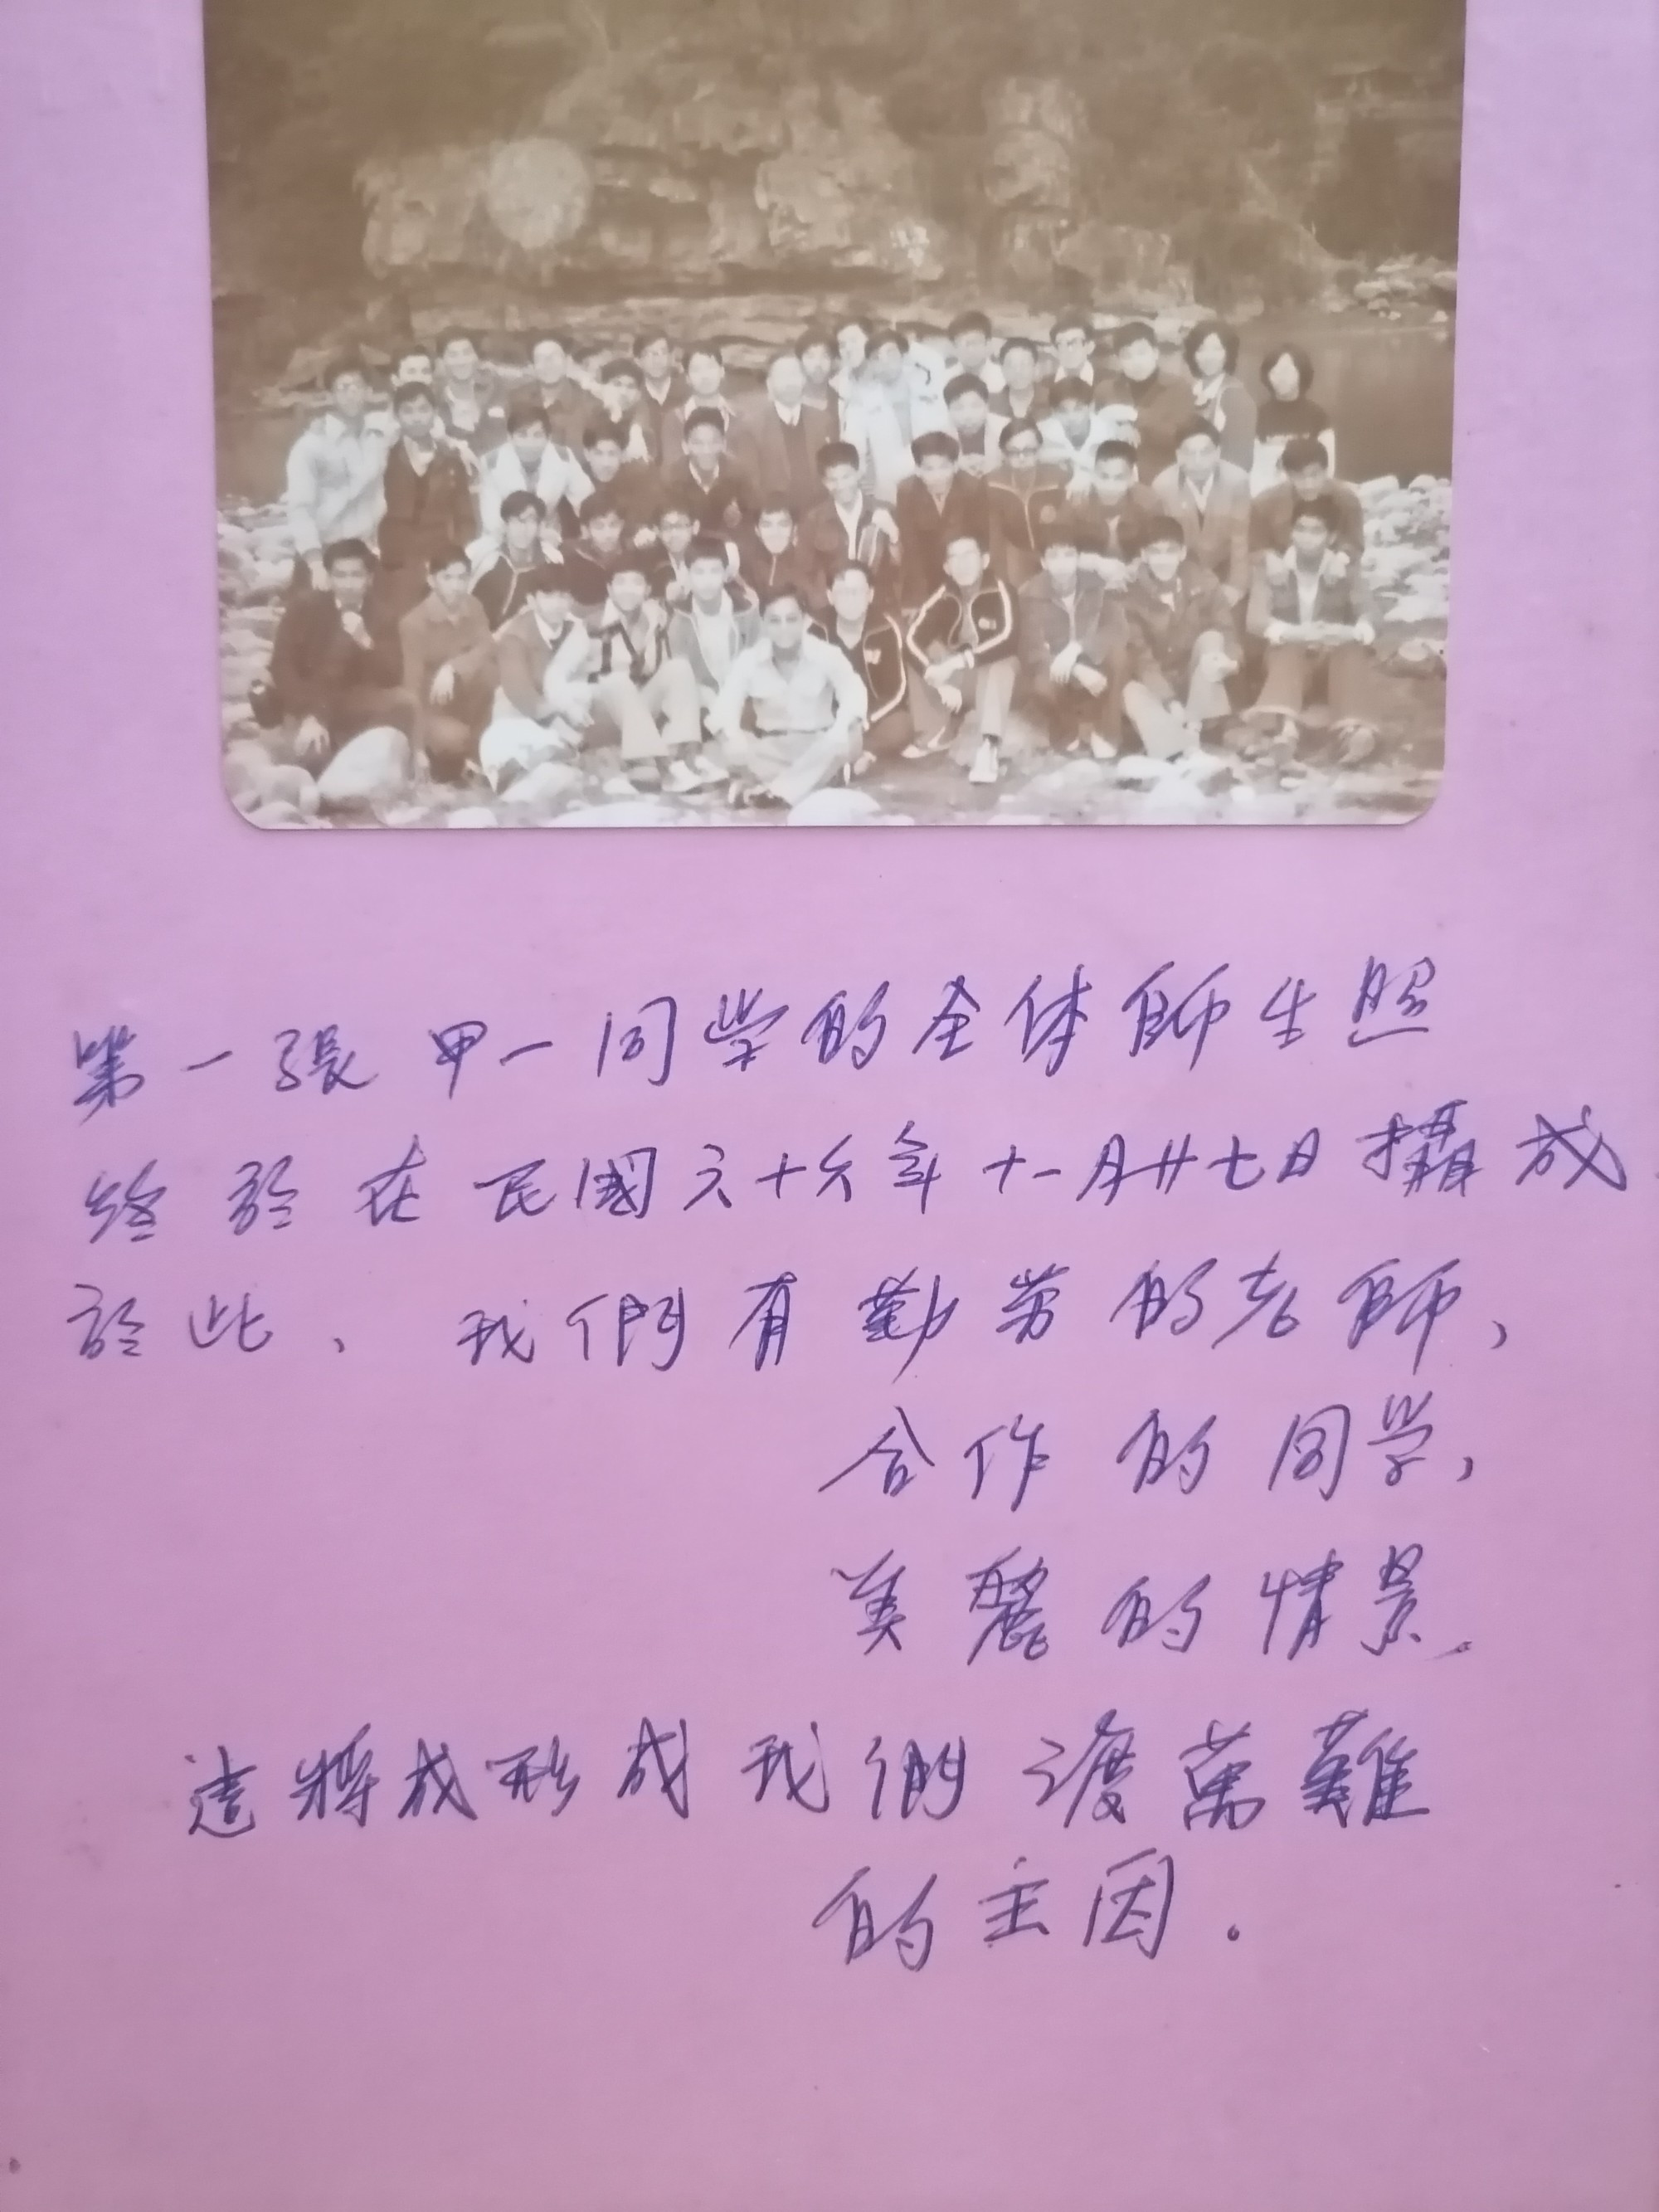 第一張甲一同学的全体師生照
終於在民國六十六年十一月廿七日攝成
於此、我們有勤勞的老師,
合作的同学,
美麗的情景
這將成形成我們渡萬難
的主因.